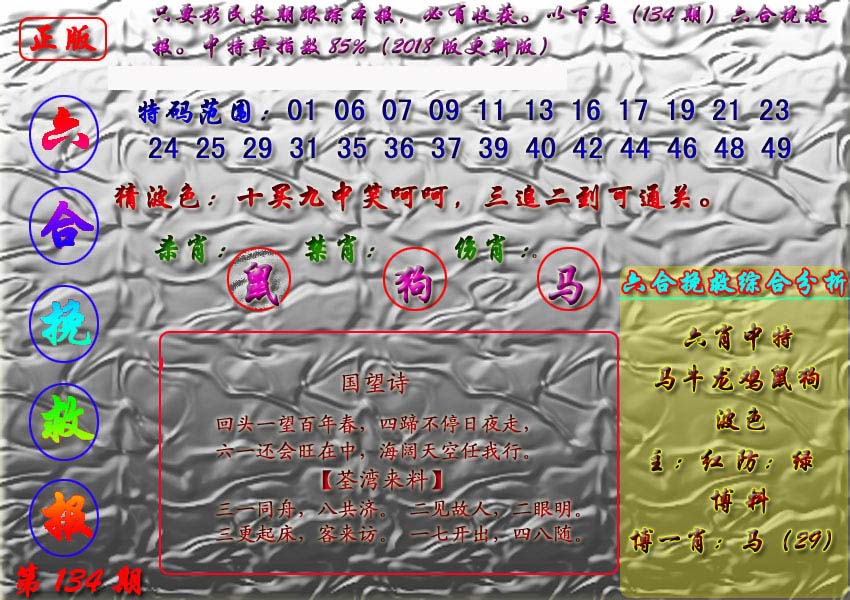 正版
只要彩民长期跟踪本报，必有收获。以下是（134期）六合挽救
报。中特率指数85%（2018版更新版）
六
合
挽
救
报
第134期
特码范围：01 06 07 09 11 13 16 17 19 21 23
24 25 29 31 35 36 37 39 40 42 44 46 48 49
猜波色：十买九中笑呵呵，三追二到可通关。
杀肖： 禁肖： 伤肖：。
鼠 狗 马
国望诗
回头一望百年春，四蹄不停日夜走，
六一还会旺在中，海阔天空任我行。
【荃湾来料】
三一同舟，八共济。 二见故人，二眼明。
三更起床，客来访。 一七开出，四八随。
六合挽救综合分析
六肖中特
马牛龙鸡鼠狗
波色
主：红防：绿
博料
博一肖：马（29）